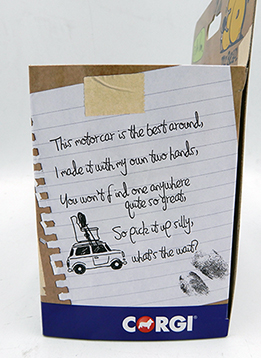 This motorcar is the best around,
I made it with my own two hands,
You won't find one anywhere
quite so great,
So pick it up silly,
what's the wait?
CORGI